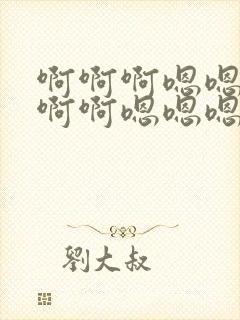 啊啊啊嗯嗯
啊啊嗯嗯嗯
劉大叔